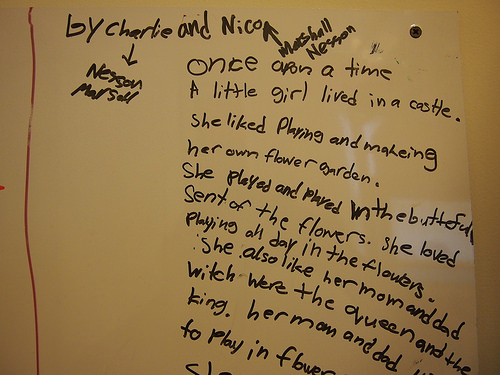 by Charlie and Nico
Marshall
Nesson
Nesson
Marsall
Once apon a time
A little girl lived in a castle.
She liked Playing and makeing
her own flower garden.
She played and played in the butteful
Sent of the flowers. She loved
Playing all day in the flowers.
She also like her mom and dad
witch were the queen and the
king. her man and dad
to play in flower
She